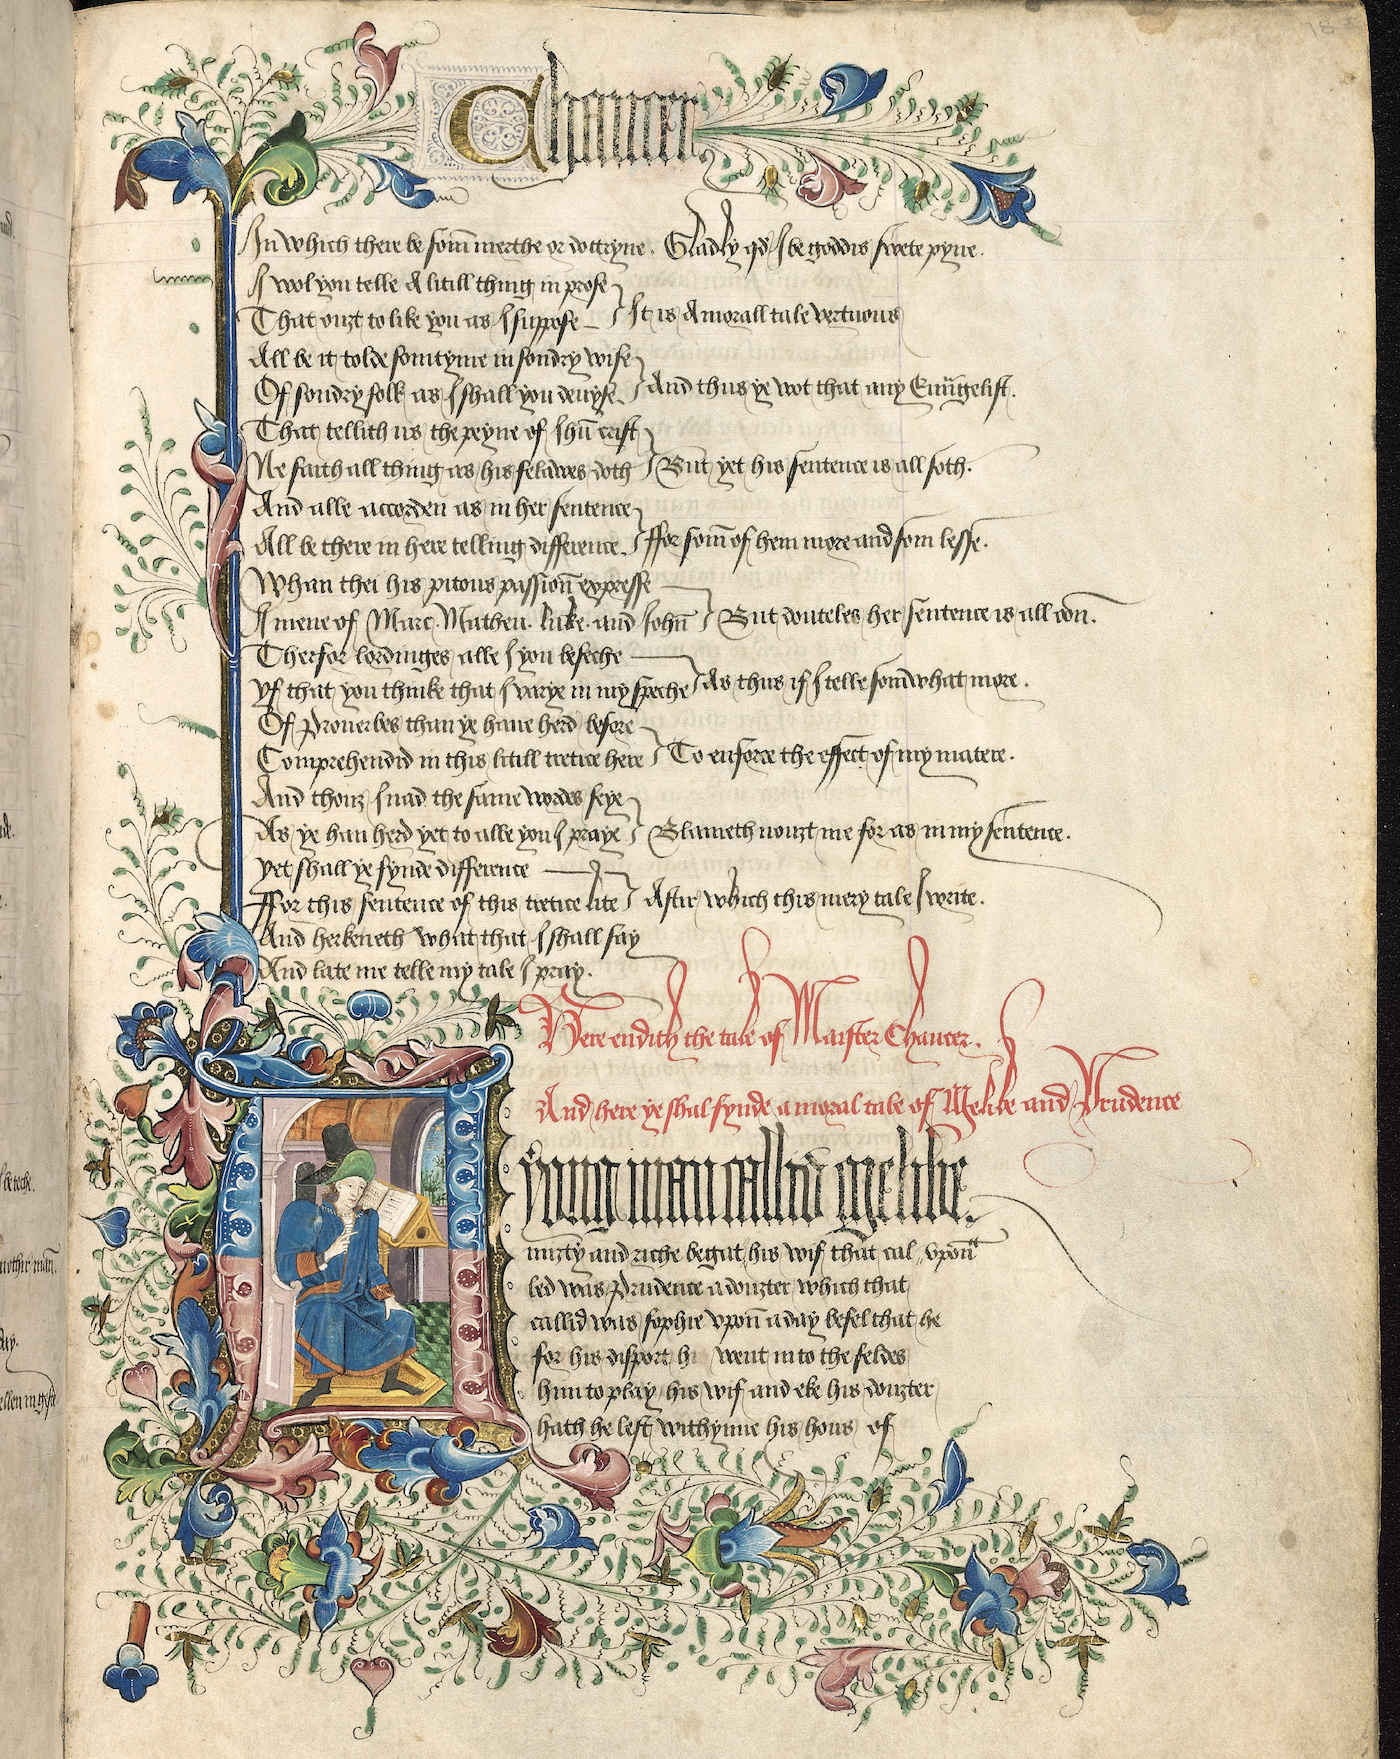 Chaucer
In which there be som̄ merthe or doctryne. Gladly qd I be goddis swete pyne.
I wol you telle A litill thing in prose
That ouzt to like you as I suppose It is A morall tale vertuous
All be it tolde somtyme in sondry wise
Of sondry folk as I shall you deuyse And thus ye wot that any Euūgelist.
That tellith us the peyne of Ihū crist
Ne saith all thing as his felawes doth But yet his sentence is all soth.
And alle accorden as in her sentence
All be there in here telling difference. ffor som̄ of hem more and som lesse.
Whan thei his pitous passion̄ expresse
I mene of Marc. Matheu. luke. and Iohn̄ But douteles her sentence is all oon̄.
Therfor lordinges alle I you beseche
yf that you thinke that I varye in my speche As thus if I telle som̄what more.
Of Prouerbes than ye haue herd before
Comprehendid in this litill tretice here To enforce the effect of my matere.
And thouz I nad the same wordes seye
As ye han herd yet to alle you I praye Blameth nouzt me for as in my sentence.
yet shall ye fynde difference
ffor this sentence of this tretice lite Aftir which this mery tale I write.
And herkeneth what that I shall say
And late me telle my tale I pray.
Here endith the tale of Maister Chaucer.
And here ye shul fynde a moral tale of Melibe and Prudence
yong man callid Melibe.
mizty and riche begat his wif that cal vpon̄
led was Prudence a douzter which that
callid was sophie vpon̄ a day befel that he
for his disport h went in to the feldes
him to play his wif and eke his douzter
hath he left withynne his hous of